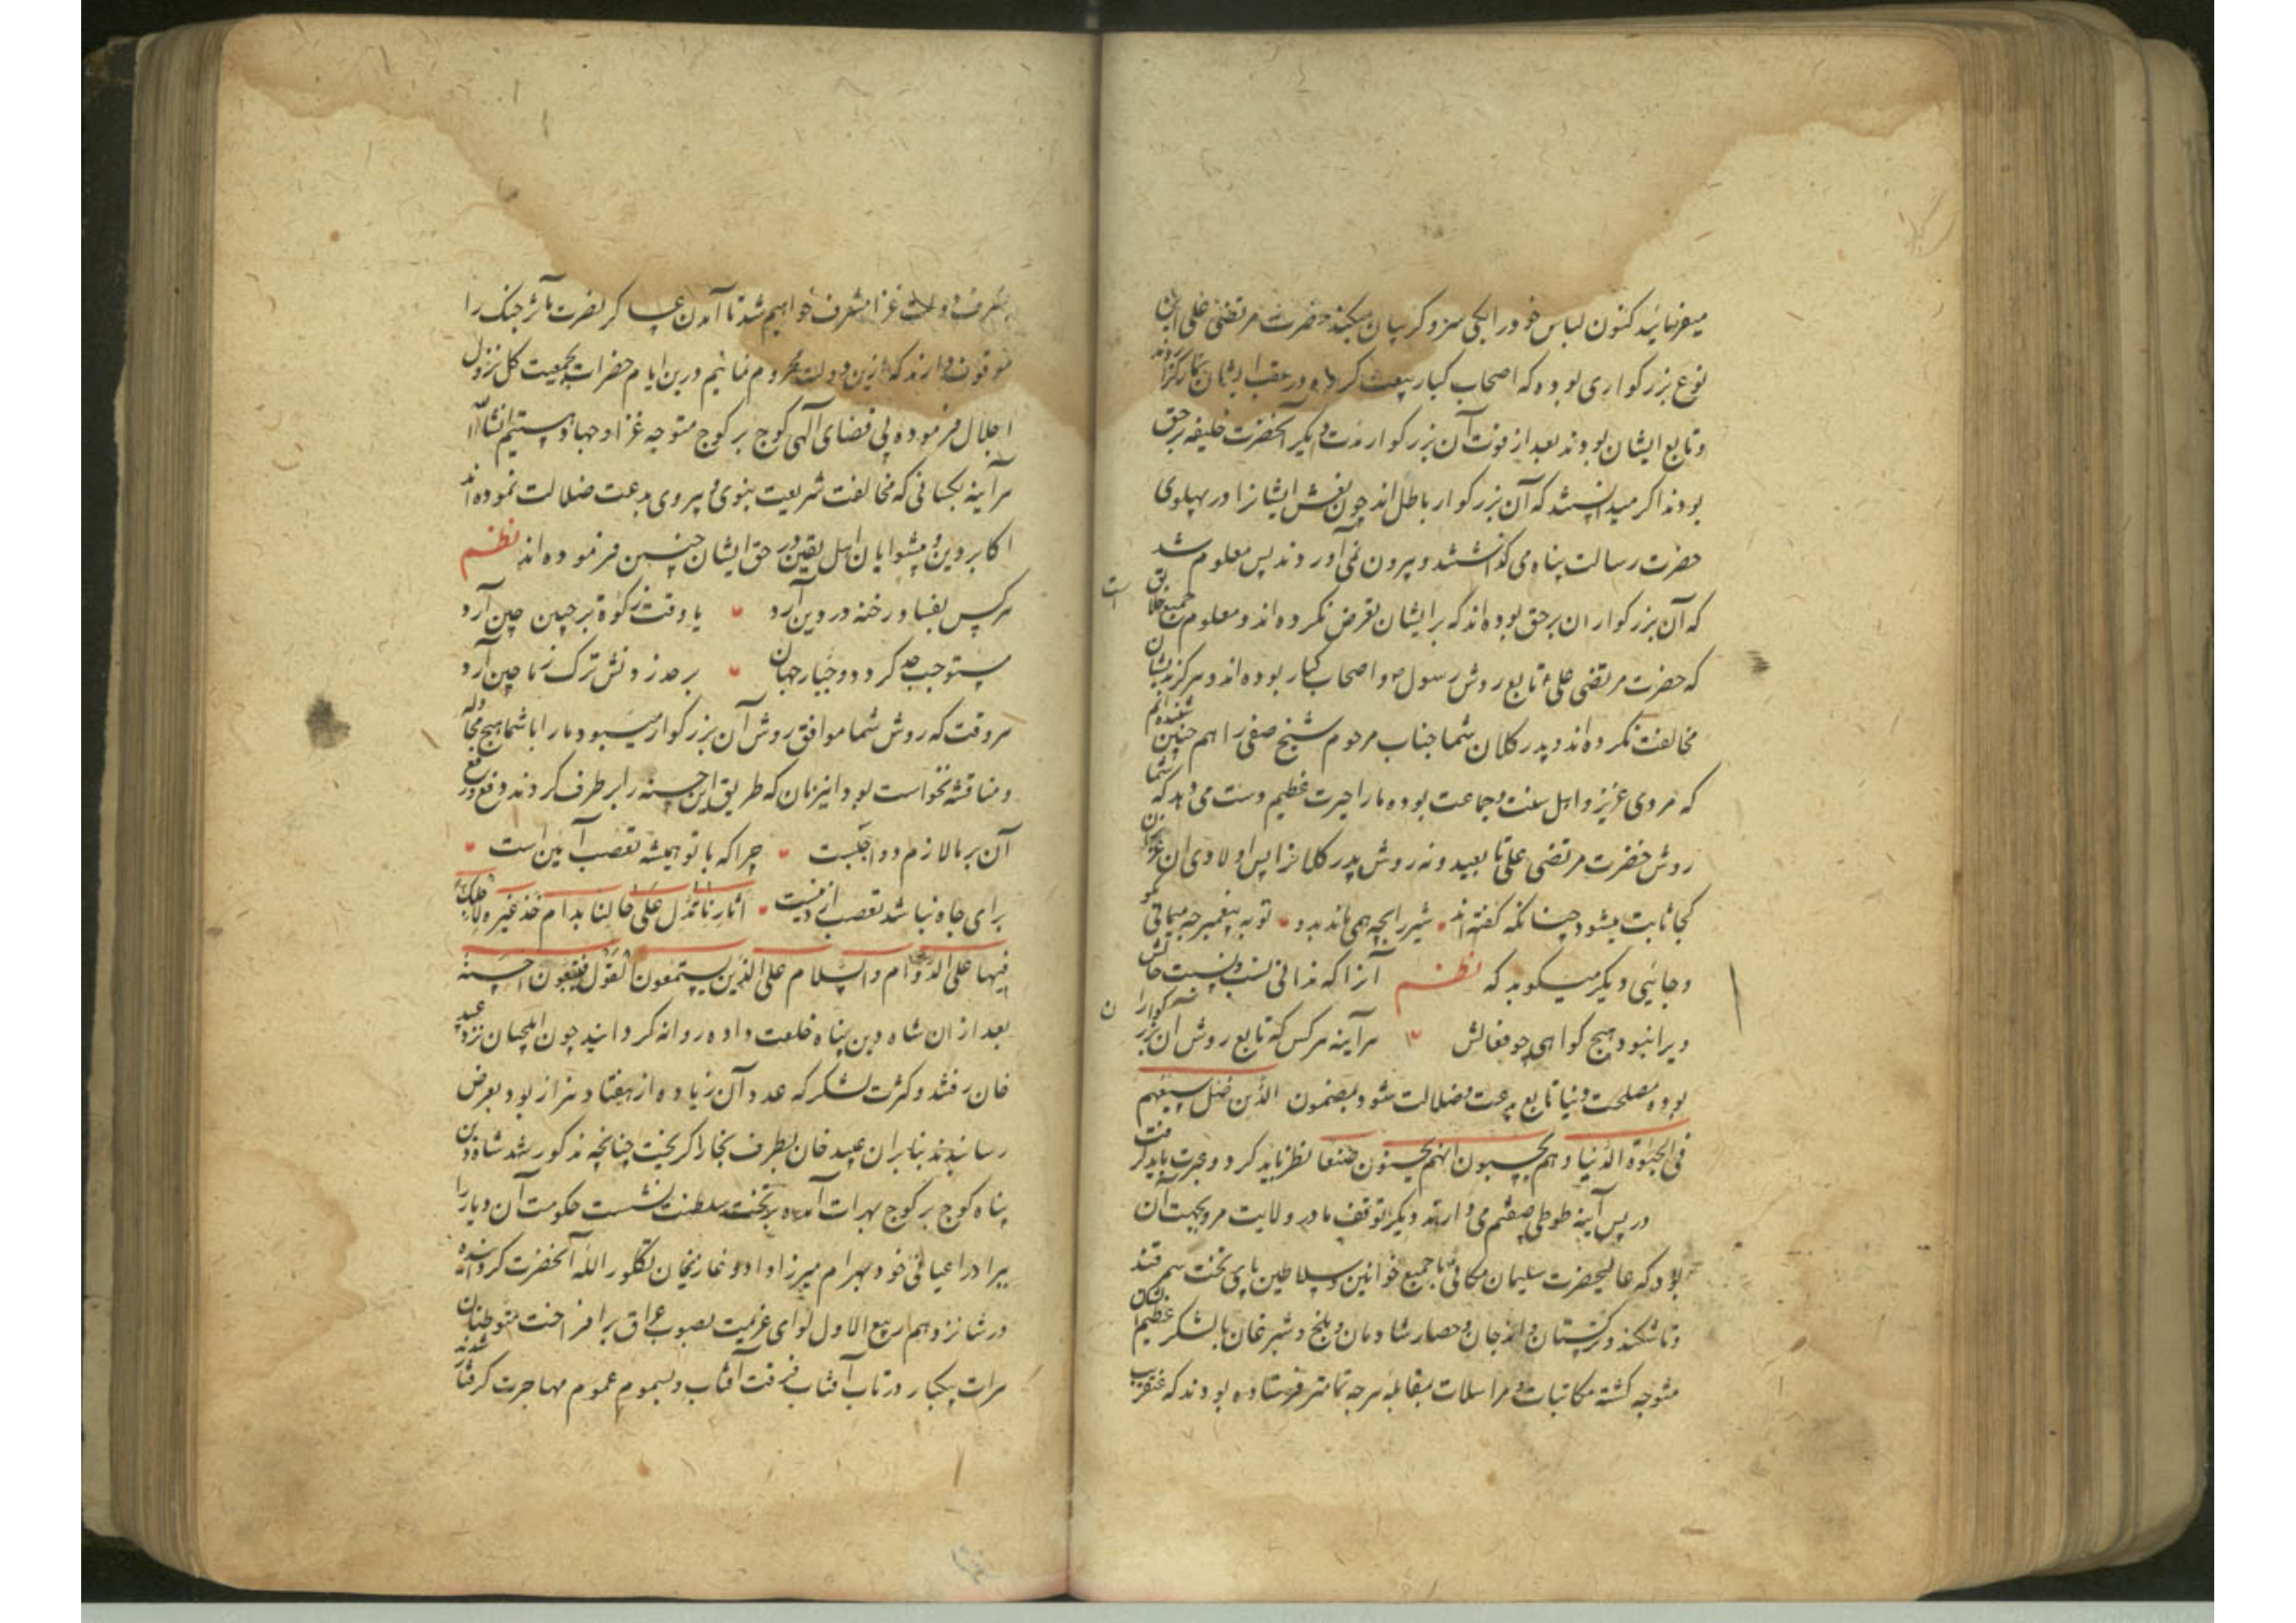 میفرمائید کنون لباس خود را یکی سر و گریبان میکند حضرت مرتضی علی این
نوع بزرگواری بوده که اصحاب کبار بیعت کرده در عقب ایشان نماز گزارده‌اند
و تابع ایشان بودند بعد از فوت آن بزرگوار مدت دیگر آنحضرت خلیفه برحق
بودند اگر میدانستند که آن بزرگوار باطل‌اند چون نعش ایشانرا در پهلوی
حضرت رسالت پناه می گذاشتند و بیرون نمی آوردند پس معلوم شد
که آن بزرگواران برحق بوده‌اند که بر ایشان تعرض نکرده‌اند و معلوم جمیع خلایق است
که حضرت مرتضی علی تابع روش رسول و اصحاب کبار بوده‌اند و هرگز بدیشان
مخالفت نکرده‌اند و پدر کلان شما جناب مرحوم شیخ صفی را هم چنین شنیده‌ایم
که مردی عزیز و اهل سنت و جماعت بوده ما را حیرت عظیم دست می دهد که شما
روش حضرت مرتضی علی تابعید و نه روش پدر کلانرا پس اولادی ان عزیزان
کجا ثابت میشود چنانکه گفته‌اند شیر را بچه همی ماند بدو تو به پیغمبر چه میمانی بگو
و جائیی دیگر میگوید که نظم آنرا که ندانی نسب و نسبت حالش
ویرا نبود هیچ گواهی چو فعالش هر آینه هر کس که تابع روش ان بزرگوارا ن
بوده مصلحت دنیا تابع بدعت و ضلالت شود بمضمون الذین ضل سعیهم
فی الحیوة الدنیا و هم یحسبون انهم یحسنون صنعا نظر باید کرد و عبرت باید گرفت
در پس آینه طوطی صفتم می دارند دیگر توقف ما در ولایت مرو بجهت آن
بود که عالیحضرت سلیمان مکانی با جمیع خوانین و سلاطین پای تخت سمرقند
و تاشکند و ترکستان و اندجان و حصار شادمان و بلخ و شبرغان با لشکر عظیم الشان
متوجه گشته مکاتبات و مراسلات بمقابله هر چه تمامتر فرستاده بودند که عنقریب
بشرف دولت غزا مشرف خواهیم شد تا آمدن عساکر نصرت مآثر جنگ را
موقوف دارند که ازین دولت محروم نمانیم درین ایام حضرات بجمعیت کل نزول
اجلال فرموده پی قضای آلهی کوچ بر کوچ متوجه غزا و جهاد هستیم انشاالله
هر آینه بکسانی که مخالفت شریعت نبوی و پیروی بدعت ضلالت نموده‌اند
اکابر دین و پیشوایان اهل یقین در حق ایشان چنین فرموده اند نظم
هر کس بفساد رخنه در دین آرد یا وقت زکوة بر جبین چین آرد
مستوجب حد گردد و جبار جهان بر حد زدنش ترک ز ماچین آرد
هر وقت که روش شما موافق روش آن بزرگوار میبود ما را با شما هیچ مجادله
و مناقشه نخواست بود انیزمان که طریق این حسنه را بر طرف کردند دفع و رفع
آن بر ما لازم و واجبست چرا که با تو همیشه تعصب آئین است
برای جاه نباشد تعصب از دینست اثارنا تدل علی حالنا بدام خذ غیره
فیها علی الدوام والسلام علی الذین یستمعون القول فیتبعون احسنه
بعد از ان شاه دین پناه خلعت داده روانه گردانید چون ایلچیان نزد عبید
خان رفتند و کثرت لشکر که عدد آن زیاده از هفتاد هزار بود بعرض
رسانیدند بنابران عبید خان بطرف بخارا گریخت چنانچه مذکور شد شاه دین
پناه کوچ بر کوچ بهرات آمده بر تخت سلطنت نشست حکومت آن دیار را
ببرادر اعیانی خود بهرام میرزا داد و غازیخان تکلو را لله آنحضرت گردانیده
در شانزدهم ربیع الاول لوای عزیمت بصوب عراق برافراخت متوطنان
هرات بیکبار در تاب آفتاب فرقت آفتاب و بسموم عموم مهاجرت گرفتار شدند